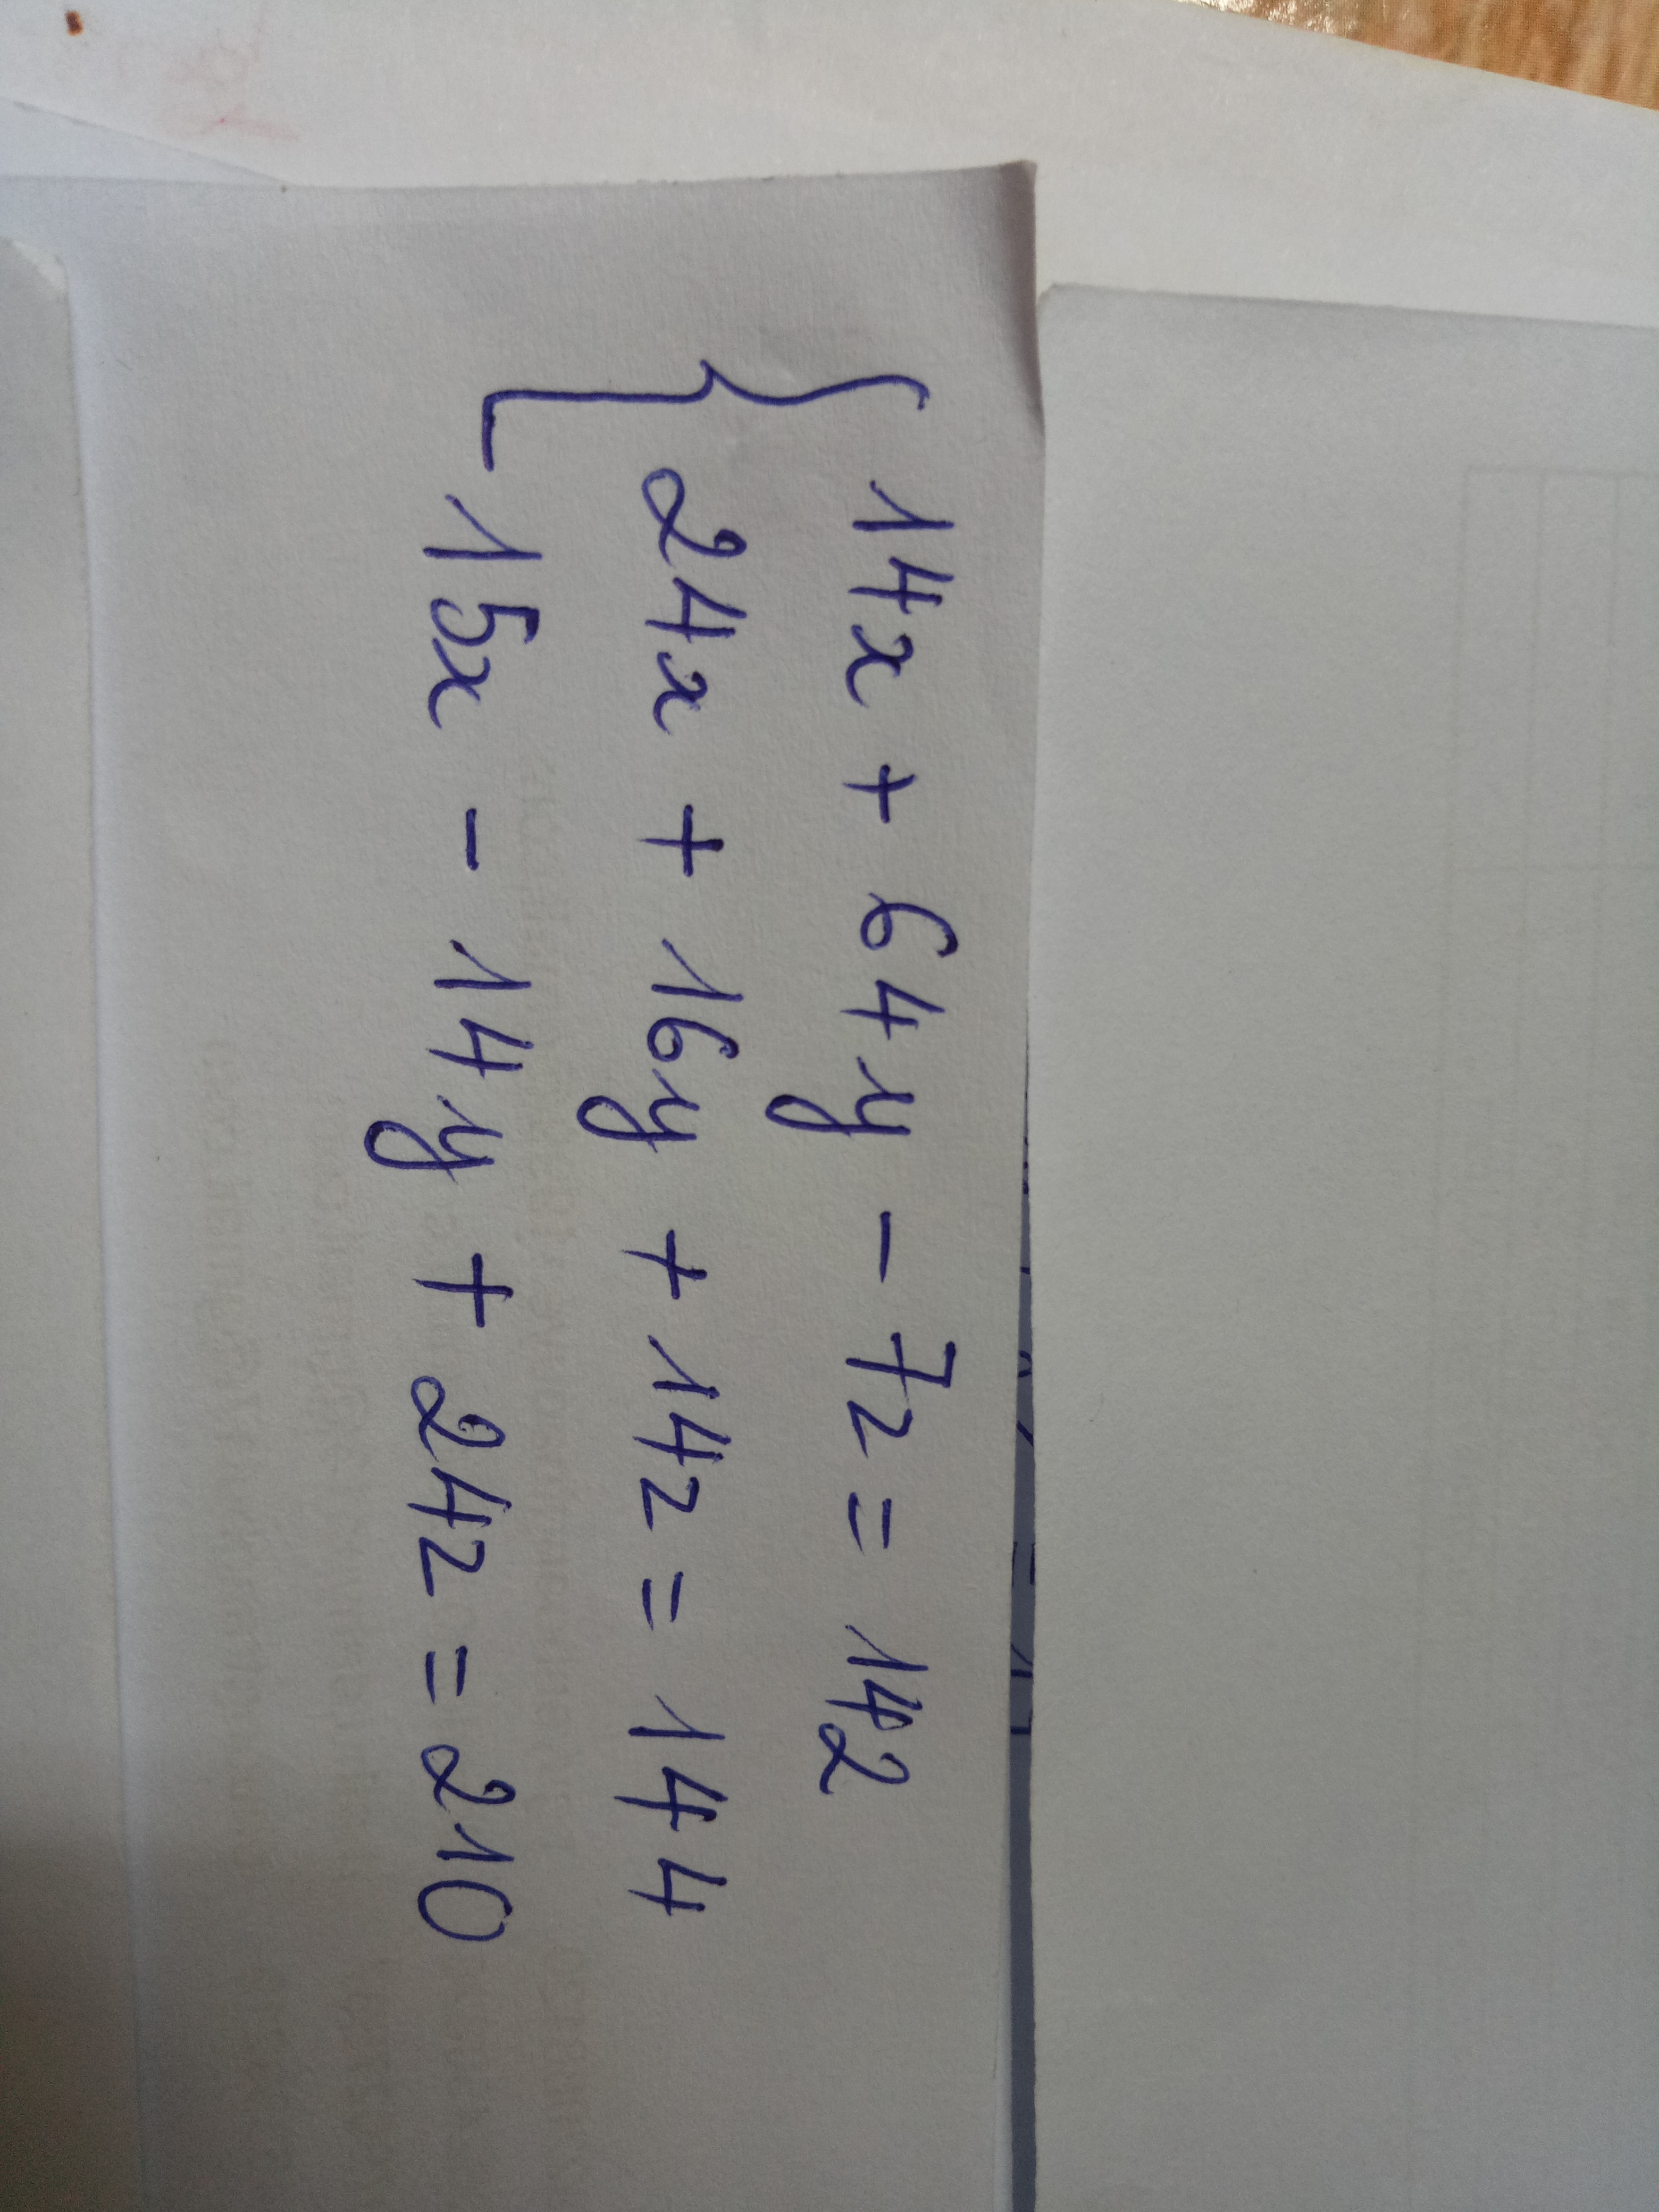 14x + 64y - 7z = 142
24x + 16y + 14z = 144
15x - 14y + 24z = 210